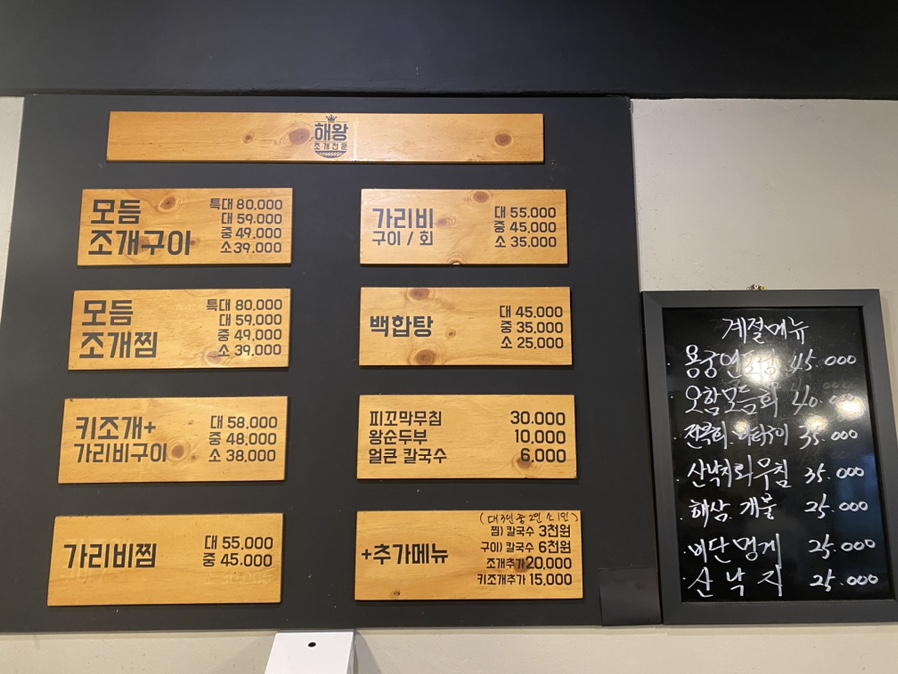 해왕
조개전문
모듬
조개구이
특대 80,000
대 59,000
중 49,000
소 39,000
가리비
구이 / 회
대 55,000
중 45,000
소 35,000
모듬
조개찜
특대 80,000
대 59,000
중 49,000
소 39,000
백합탕
대 45,000
중 35,000
소 25,000
키조개+
가리비구이
대 58,000
중 48,000
소 38,000
피꼬막무침 30.000
왕순두부 10,000
얼큰 칼국수 6,000
가리비찜
대 55,000
중 45.000
+추가메뉴
(대3인 중2인 소1인)
찜) 칼국수 3천원
구이) 칼국수 6천원
조개추가 20,000
키조개추가 15,000
계절메뉴
용궁연포탕 45.000
모듬회 40.000
35.000
산낙지회무침 35.000
해삼 개불 25.000
비단멍게 25.000
산낙지 25.000